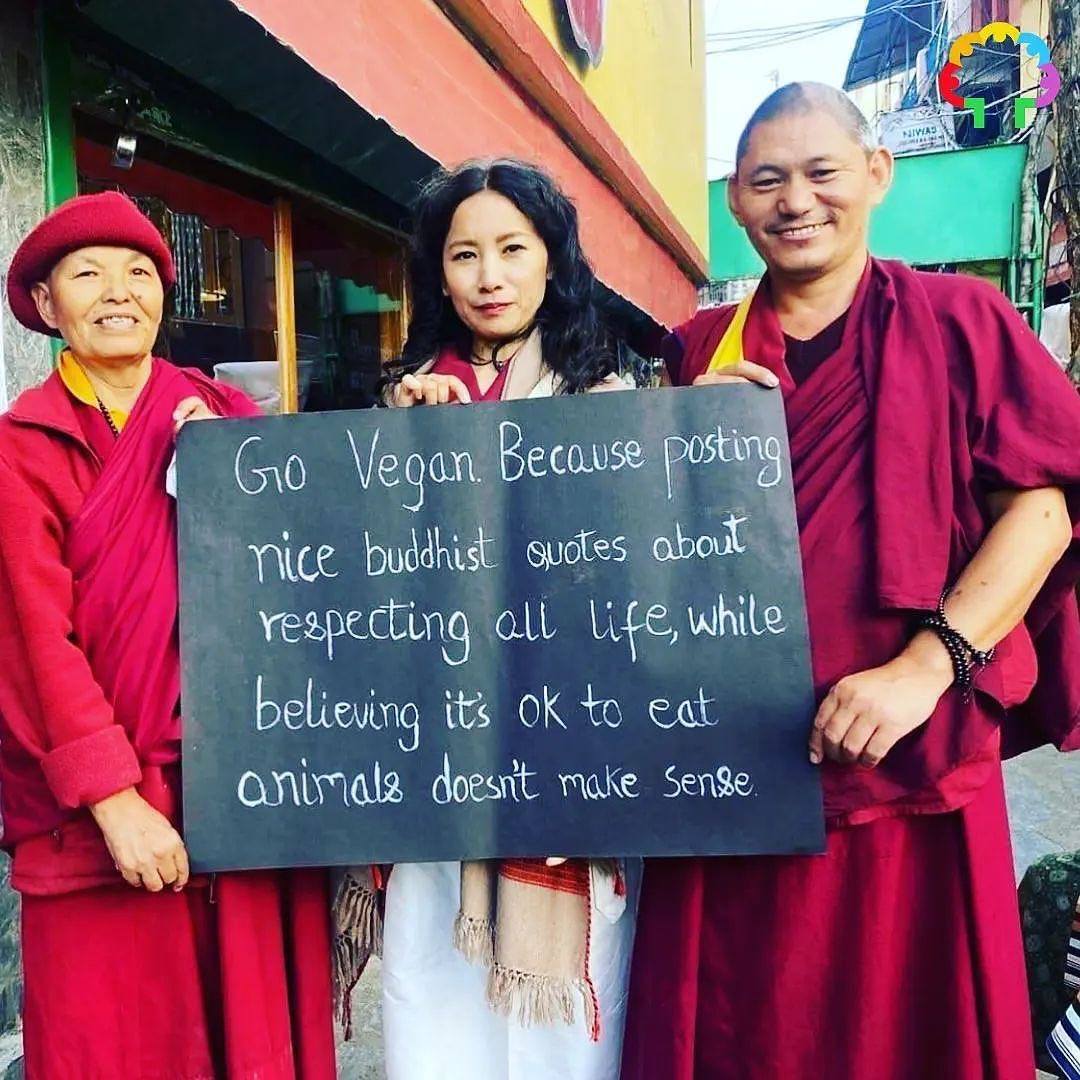 Go Vegan. Because posting
nice buddhist quotes about
respecting all life, while
believing it's OK to eat
animals doesn't make sense.